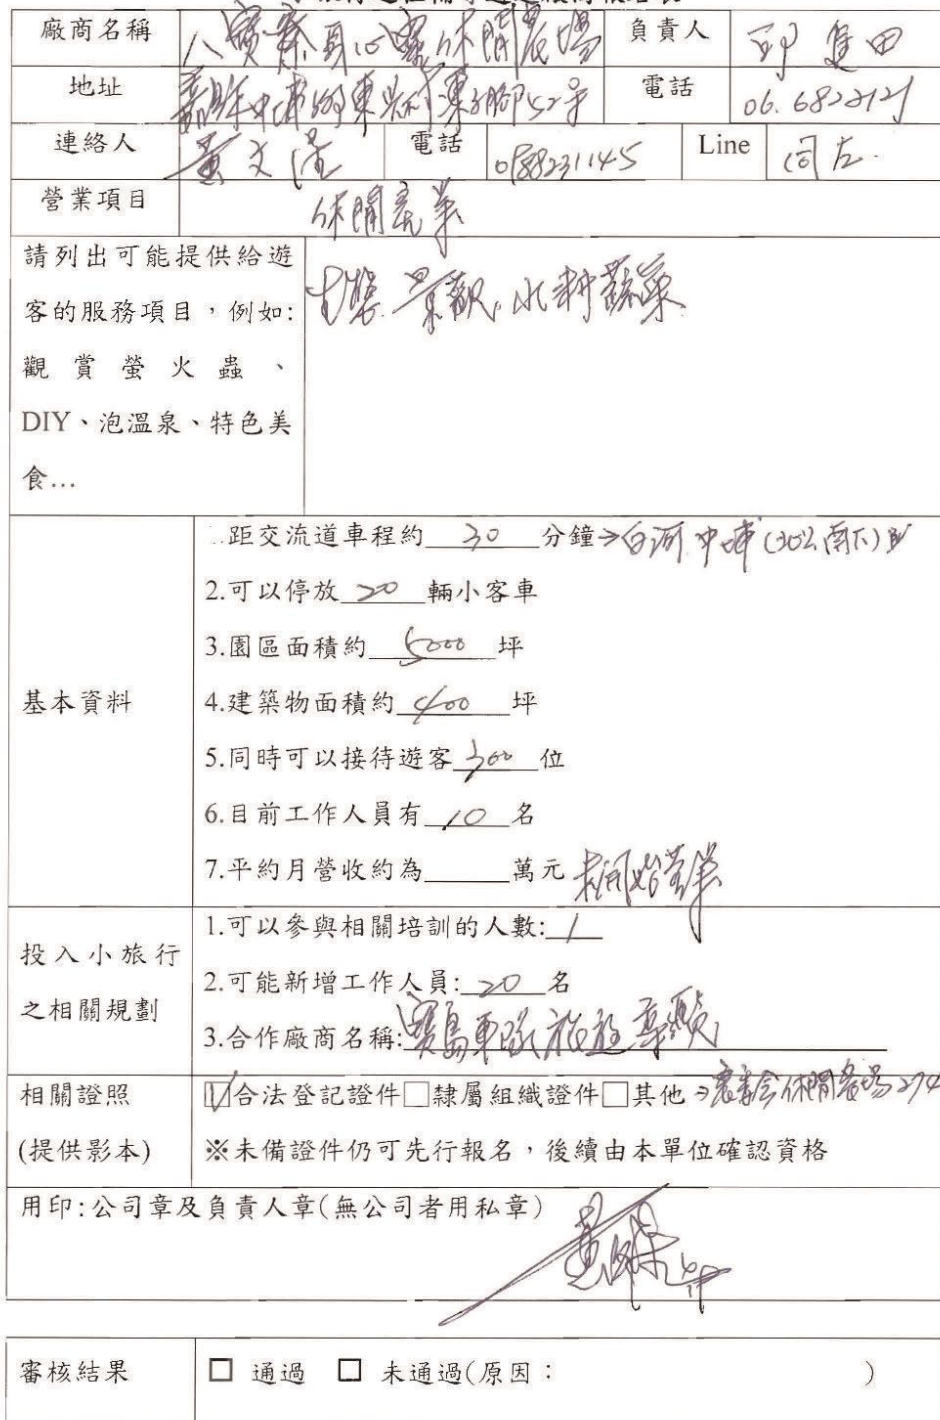 廠商名稱 八寶寮身心靈休閒農場 負責人 邱進田
地址 嘉縣中埔鄉東興村凍子腳52号 電話 06.6822121
連絡人 黃文 電話 0988231145 Line 同左.
營業項目 休閒產業
請列出可能提供給遊 景觀.水耕蔬菜
客的服務項目，例如:
觀賞螢火蟲、
DIY、泡溫泉、特色美
食…
距交流道車程約 30 分鐘→白河 中埔(30公南下)
2.可以停放 20 輛小客車
3.園區面積約 5000 坪
基本資料 4.建築物面積約 400 坪
5.同時可以接待遊客 300 位
6.目前工作人員有 10 名
7.平約月營收約為 萬元 未開始營業
1.可以參與相關培訓的人數: 1
投入小旅行
2.可能新增工作人員: 20 名
之相關規劃
3.合作廠商名稱: 寶島車隊旅遊
相關證照 ☑合法登記證件□隸屬組織證件□其他→農委會休閒農場274
(提供影本) ※未備證件仍可先行報名，後續由本單位確認資格
用印:公司章及負責人章(無公司者用私章)
審核結果 □ 通過 □ 未通過(原因： )